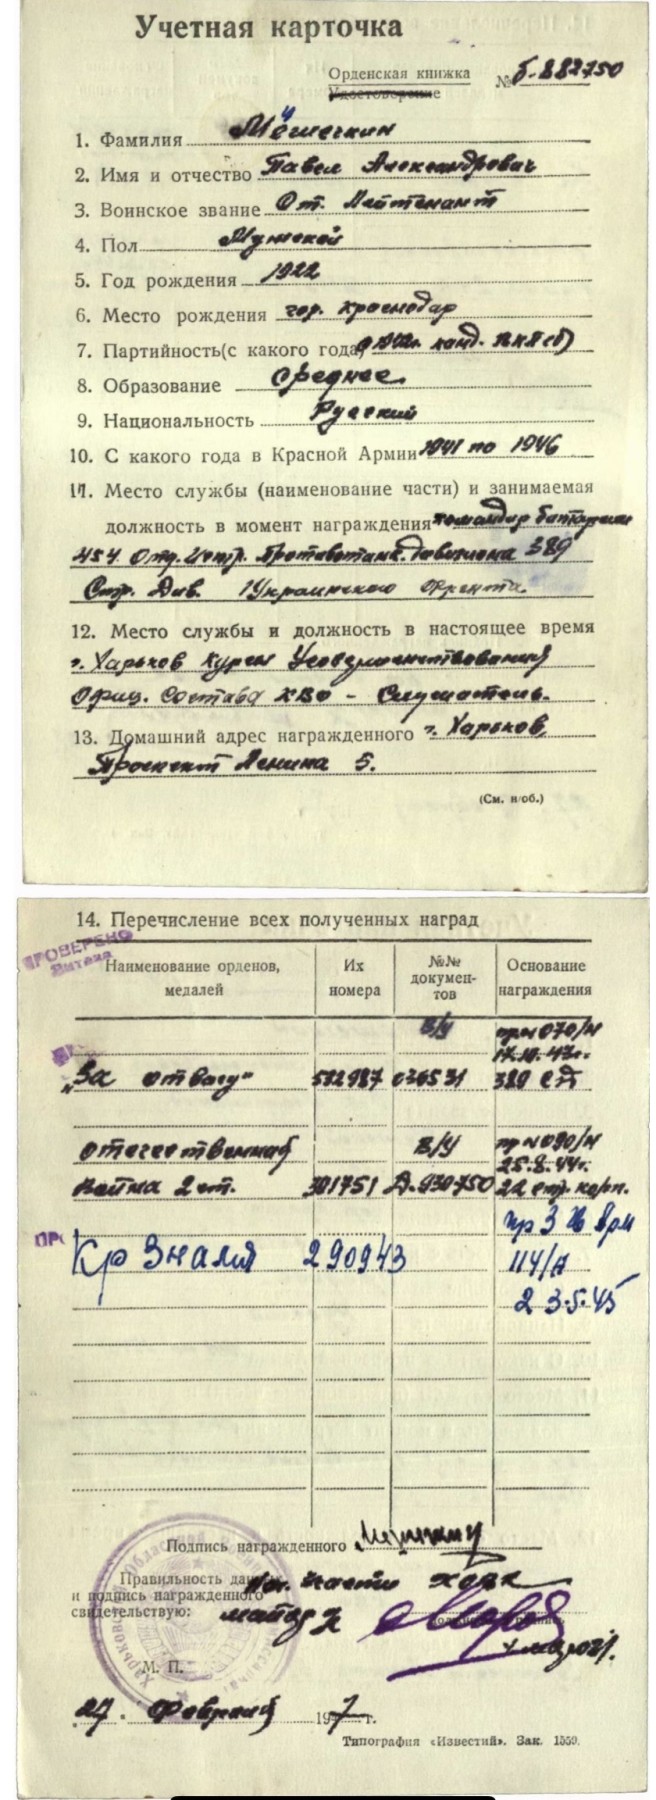 Учетная карточка
Орденская книжка № Б-882750
Удостоверение
1. Фамилия Мешечкин
2. Имя и отчество Павел Александрович
3. Воинское звание Ст. Лейтенант
4. Пол Мужской
5. Год рождения 1922
6. Место рождения гор. Краснодар
7. Партийность (с какого года) с 1942г. канд. ВКП(б)
8. Образование Среднее
9. Национальность Русский
10. С какого года в Красной Армии 1941 по 1946
11. Место службы (наименование части) и занимаемая
должность в момент награждения командир батареи
454 Отд. Истр. Противотанк. дивизиона 389
Стр. Див. 1 Украинского Фронта.
12. Место службы и должность в настоящее время
г. Харьков Курсы Усовершенствования
Офиц. Состава ХВО - Слушатель.
13. Домашний адрес награжденного г. Харьков,
Проспект Ленина 5.
(См. н/об.)
14. Перечисление всех полученных наград
ПРОВЕРЕНО
Наименование орденов, медалей
Их номера
№№ документов
Основание награждения
В/У пр № 070/н
17.10.43г.
„За отвагу" 582987 036531 389 СД
Отечественная В/У пр № 090/н
25.8.44г.
Война 2 ст. 301751 Д. 930750 22 стр. корп.
пр 3 Гв Арм
Кр Знамя 290943 114/н
23.5.45
Подпись награжденного
Правильность данных
и подпись награжденного
свидетельствую: майор
М. П.
27 Февраля 1947 г.
Типография «Известий». Зак. 1559.